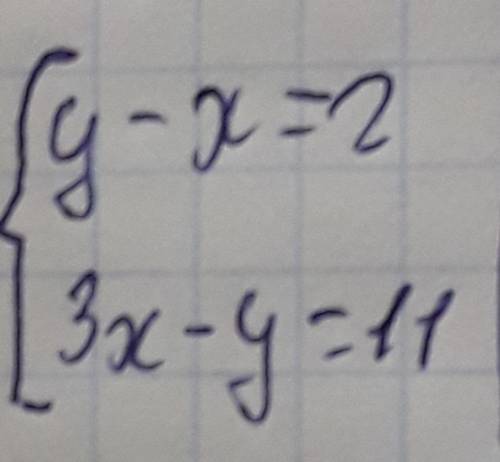 y - x = 2
3x - y = 11